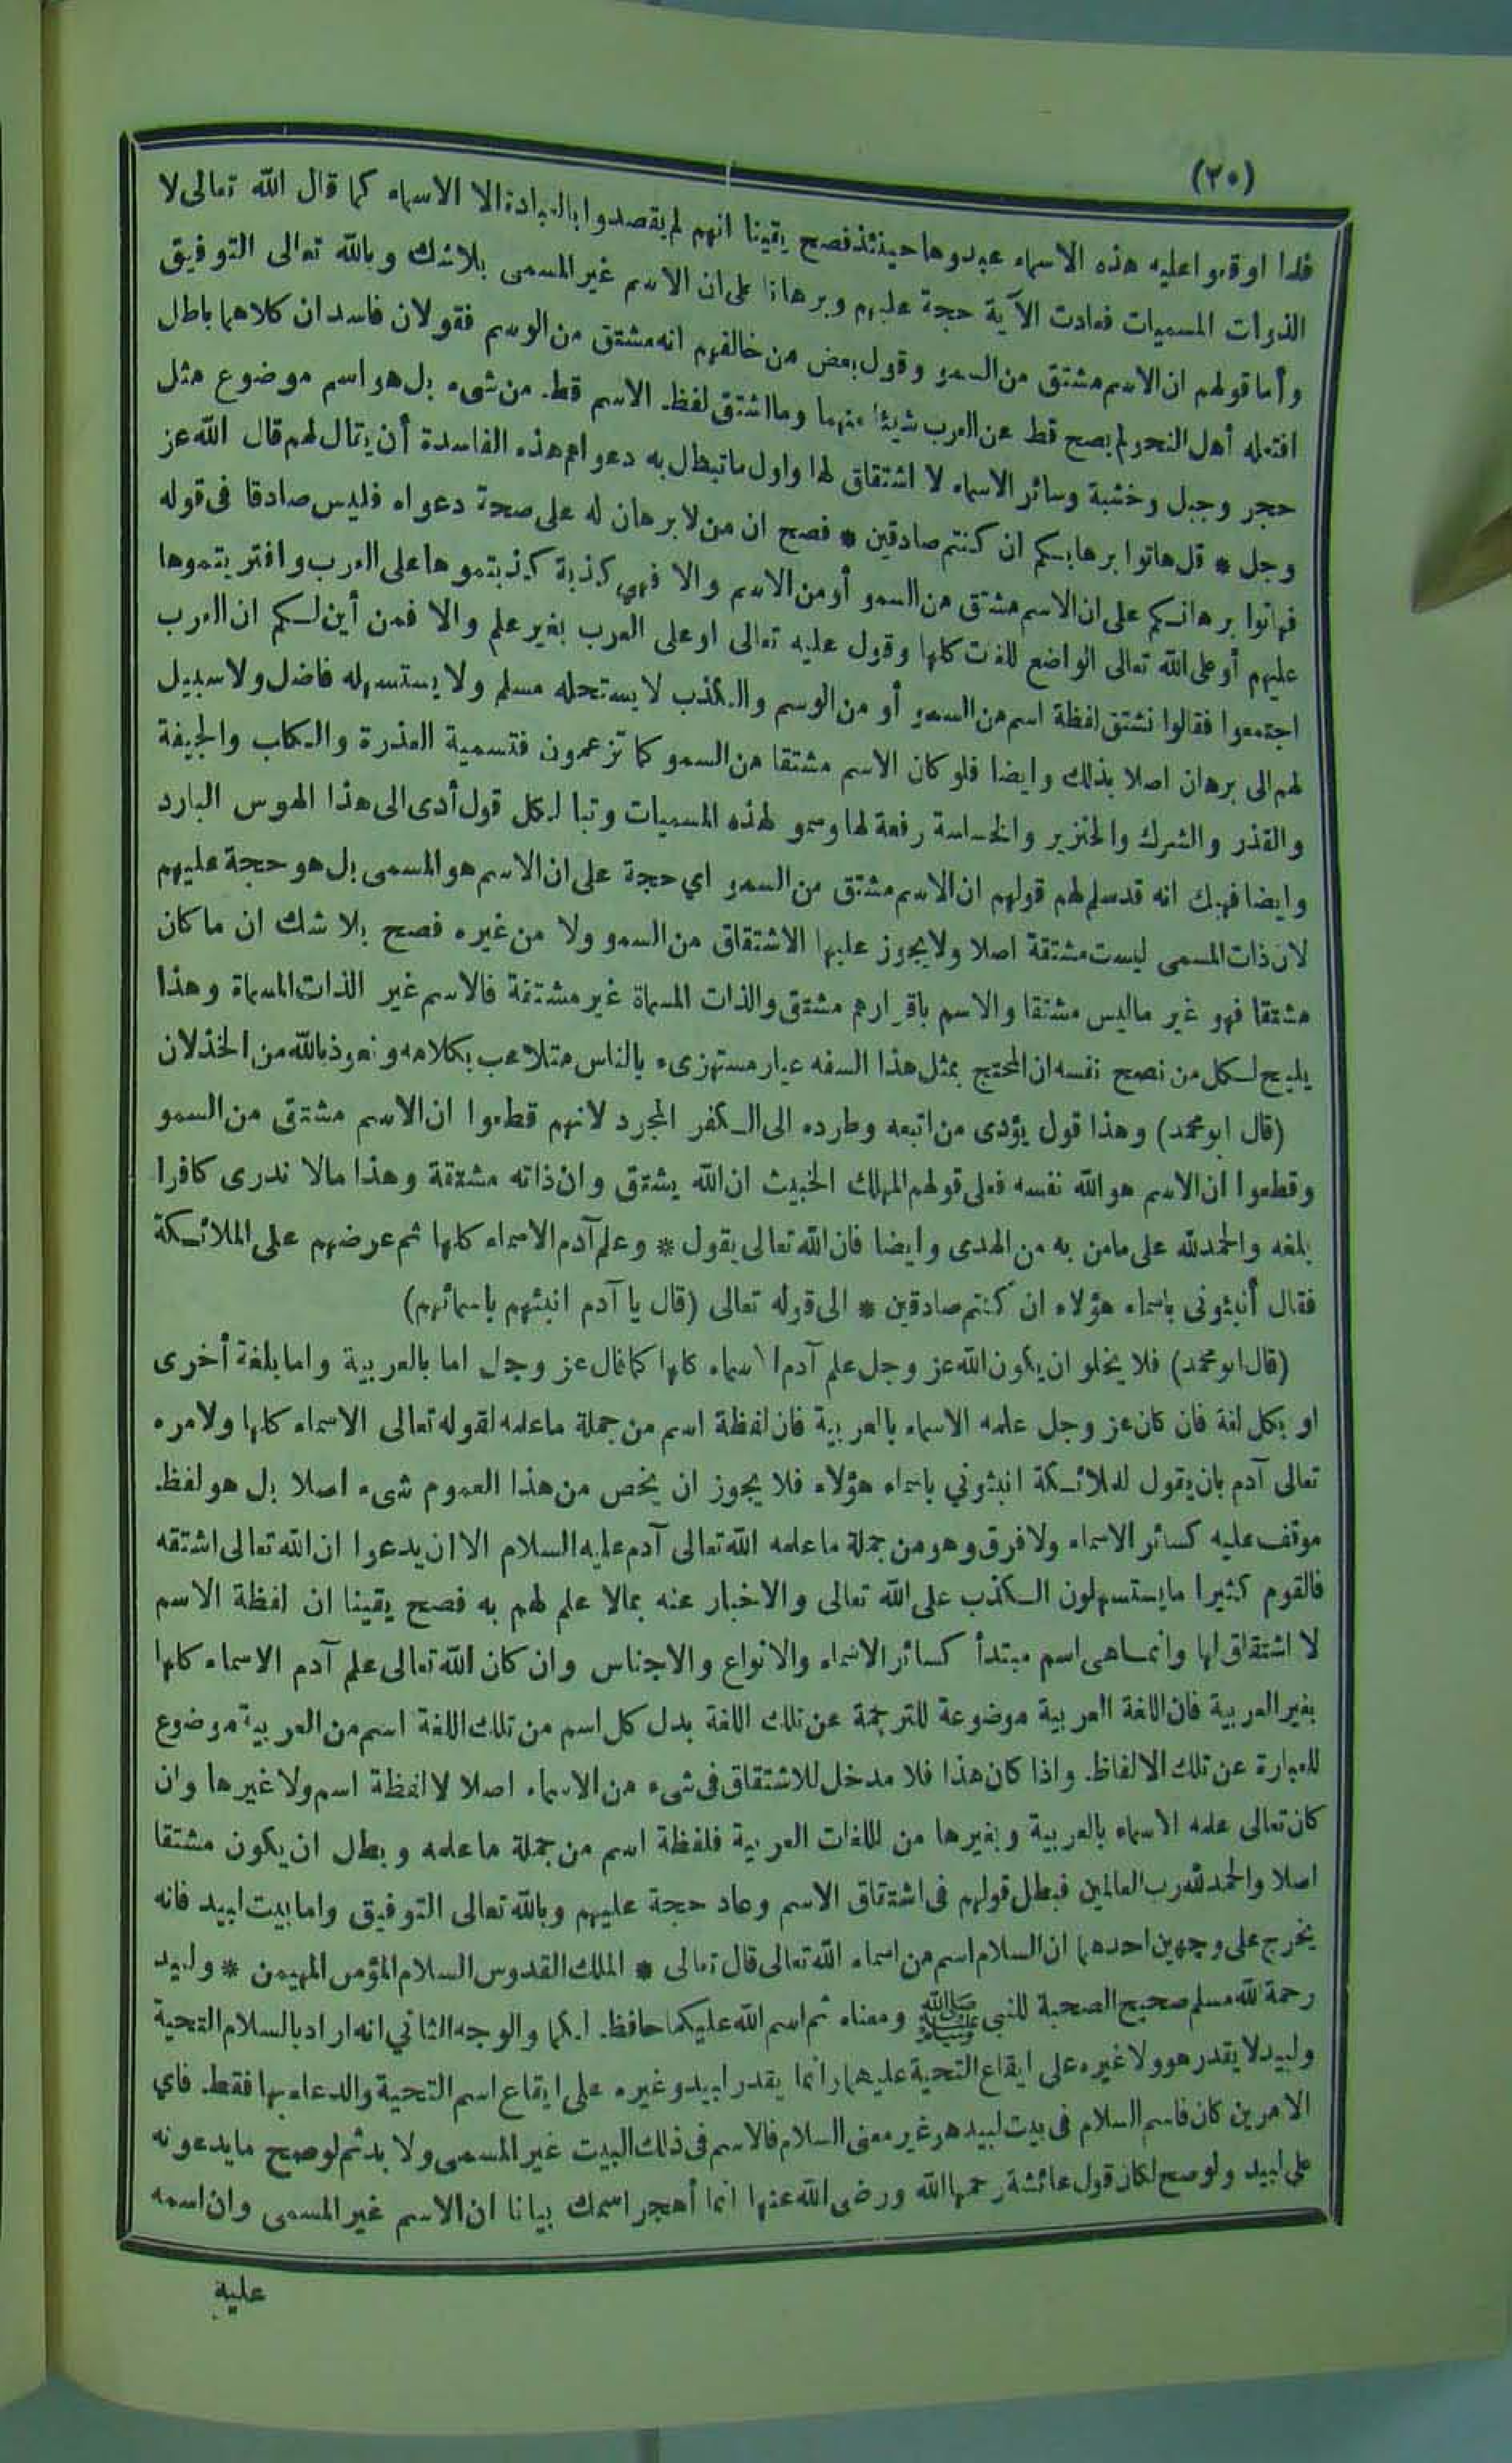 (٢٠)
فلما اوقعوا عليه هذه الاسماء عبدوها حينئذ فصح يقينا انهم لم يقصدوا بالعبادة الا الاسماء كما قال الله تعالى لا
الذوات المسميات فعادت الآية حجة عليهم وبرهانا على ان الاسم غير المسمى بلاشك وبالله تعالى التوفيق
وأما قولهم ان الاسم مشتق من السمو وقول بعض من خالفهم انه مشتق من الوسم فقولان فاسدان كلاهما باطل
افتعله أهل النحو لم يصح قط عن العرب شيئا منهما وما اشتق لفظ الاسم قط من شىء بل هو اسم موضوع مثل
حجر وجبل وخشبة وسائر الاسماء لا اشتقاق لها واول ما تبطل به دعواهم هذه الفاسدة أن يقال لهم قال الله عز
وجل * قل هاتوا برهانكم ان كنتم صادقين * فصح ان من لا برهان له على صحة دعواه فليس صادقا فى قوله
فهاتوا برهانكم على ان الاسم مشتق من السمو أو من الاسم والا فهى كذبة كذبتموها على العرب وافتريتموها
عليهم أو على الله تعالى الواضع للغات كلها وقول عليه تعالى او على العرب بغير علم والا فمن أين لكم ان العرب
اجتمعوا فقالوا نشتق لفظة اسم من السمو أو من الوسم والكذب لا يستحله مسلم ولا يستسهله فاضل ولا سبيل
لهم الى برهان اصلا بذلك وايضا فلو كان الاسم مشتقا من السمو كما تزعمون فتسمية العذرة والكلب والجيفة
والقذر والشرك والخنزير والخساسة رفعة لها وسمو لهذه المسميات وتبا لكل قول أدى الى هذا الهوس البارد
وايضا فهبك انه قد سلم لهم قولهم ان الاسم مشتق من السمو اي حجة على ان الاسم هو المسمى بل هو حجة عليهم
لان ذات المسمى ليست مشتقة اصلا ولا يجوز عليها الاشتقاق من السمو ولا من غيره فصح بلا شك ان ما كان
مشتقا فهو غير ما ليس مشتقا والاسم باقرارهم مشتق والذات المسماة غير مشتقة فالاسم غير الذات المسماة وهذا
يليح لكل من نصح نفسه ان المحتج بمثل هذا السفه عيار مستهزىء بالناس متلاعب بكلامه ونعوذ بالله من الخذلان
(قال ابو محمد) وهذا قول يؤدى من اتبعه وطرده الى الكفر المجرد لانهم قطعوا ان الاسم مشتق من السمو
وقطعوا ان الاسم هو الله نفسه فعلى قولهم المهلك الخبيث ان الله يشتق وان ذاته مشتقة وهذا مالا ندرى كافرا
بلغه والحمد لله على مامن به من الهدى وايضا فان الله تعالى يقول * وعلم آدم الاسماء كلها ثم عرضهم على الملائكة
فقال أنبئونى باسماء هؤلاء ان كنتم صادقين * الى قوله تعالى (قال يا آدم انبئهم باسمائهم)
(قال ابو محمد) فلا يخلو ان يكون الله عز وجل علم آدم الاسماء كلها كما قال عز وجل اما بالعربية واما بلغة أخرى
او بكل لغة فان كان عز وجل علمه الاسماء بالعربية فان لفظة اسم من جملة ما علمه لقوله تعالى الاسماء كلها ولامره
تعالى آدم بان يقول للملائكة انبئوني باسماء هؤلاء فلا يجوز ان يخص من هذا العموم شىء اصلا بل هو لفظ
موقف عليه كسائر الاسماء ولا فرق وهو من جملة ما علمه الله تعالى آدم عليه السلام الا ان يدعوا ان الله تعالى اشتقه
فالقوم كثيرا ما يستسهلون الكذب على الله تعالى والاخبار عنه بمالا علم لهم به فصح يقينا ان لفظة الاسم
لا اشتقاق لها وانما هى اسم مبتدأ كسائر الاسماء والانواع والاجناس وان كان الله تعالى علم آدم الاسماء كلها
بغير العربية فان اللغة العربية موضوعة للترجمة عن تلك اللغة بدل كل اسم من تلك اللغة اسم من العربية موضوع
للعبارة عن تلك الالفاظ واذا كان هذا فلا مدخل للاشتقاق فى شىء من الاسماء اصلا لا لفظة اسم ولا غيرها وان
كان تعالى علمه الاسماء بالعربية وبغيرها من اللغات العربية فلفظة اسم من جملة ما علمه وبطل ان يكون مشتقا
اصلا والحمد لله رب العالمين فبطل قولهم فى اشتقاق الاسم وعاد حجة عليهم وبالله تعالى التوفيق واما بيت لبيد فانه
يخرج على وجهين احدهما ان السلام اسم من اسماء الله تعالى قال تعالى * الملك القدوس السلام المؤمن المهيمن * ولبيد
رحمة لله مسلم صحيح الصحبة للنبى ﷺ ومعناه ثم اسم الله عليكما حافظ لكما والوجه الثاني انه اراد بالسلام التحية
ولبيد لا يقدر هو ولا غيره على ايقاع التحية عليهما وانما يقدر لبيد وغيره على ايقاع اسم التحية والدعاء بها فقط فاي
الامرين كان فاسم السلام فى بيت لبيد هو غير معنى السلام فالاسم فى ذلك البيت غير المسمى ولا بد ثم لو صح ما يدعونه
على لبيد ولو صح لكان قول عائشة رحمها الله ورضى الله عنها انما أهجر اسمك بيانا ان الاسم غير المسمى وان اسمه
عليه